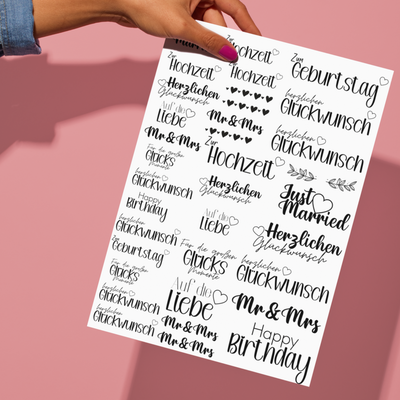 Zur
Hochzeit
Zur
Hochzeit
Herzlichen
Glückwunsch
Auf die
Liebe
Mr & Mrs
Für die großen
Glücks
Momente
herzlichen
Glückwunsch
Happy
Birthday
herzlichen
Glückwunsch
Zum
Geburtstag
Für die großen
Glücks
Momente
herzlichen
Glückwunsch
herzlichen
Glückwunsch
Zur
Hochzeit
Mr & Mrs
Zur
Hochzeit
Herzlichen
Glückwunsch
Auf die
Liebe
Für die großen
Glücks
Momente
Auf die
Liebe
Mr & Mrs
Mr & Mrs
Zum
Geburtstag
herzlichen
Glückwunsch
herzlichen
Glückwunsch
Just
Married
Herzlichen
Glückwunsch
herzlichen
Glückwunsch
Mr & Mrs
Happy
Birthday